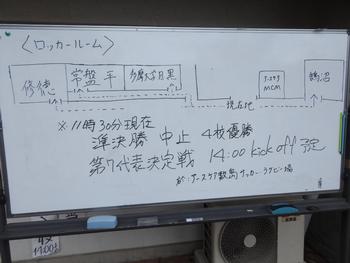 〈ロッカールーム〉
修徳
常盤平
多摩大目黒
ケースケア
MCM
鵠沼
現在地
※11時30分現在
準決勝 中止 4校優勝
第7代表決定戦 14:00 kick off 予定
サッカー・ラグビー場
14:00